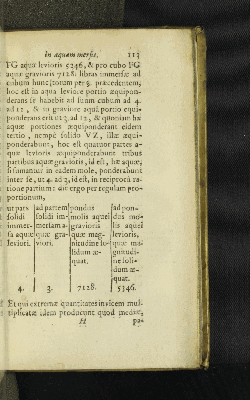 In aquam mersis. 113
FG aquæ levioris 5346, & pro cubo FG
aquæ gravioris 7128. libras immersæ ad
cubum hunc, totum per 5. præcedentem,
hoc est in aqua leviore portio æquipon-
derans se habebit ad suum cubum ad 4.
ad 12, & in graviore aqua portio æqui-
ponderans erit ad 12, & quoniam hæ
aquæ portiones æquiponderant eidem
tertio, nempè solido VZ, illæ æqui-
ponderabunt, hoc est quatuor partes a-
quæ levioris æquiponderabunt tribus
partibus aquæ gravioris, id est, hæ aquæ,
si sumantur in eadem mole, ponderabunt
inter se, ut 4. ad 3, id est, in reciproca ra-
tione partium: dic ergo per regulam pro-
portionum,
ut pars ad partem pondus ad pon-
solidi solidi im- molis aquæ dus mo-
immer- mersam a- gravioris lis aquæ
sa aquæ quæ gra- quæ mag- levioris,
leviori. viori. nitudine so- quæ ma-
lidum æ- gnitudi-
quat. ne soli-
dum æ-
quat.
4. 3. 7128. 5346.
Et qui extremæ quantitates invicem mul-
tiplicatæ idem producunt quod mediæ,
H